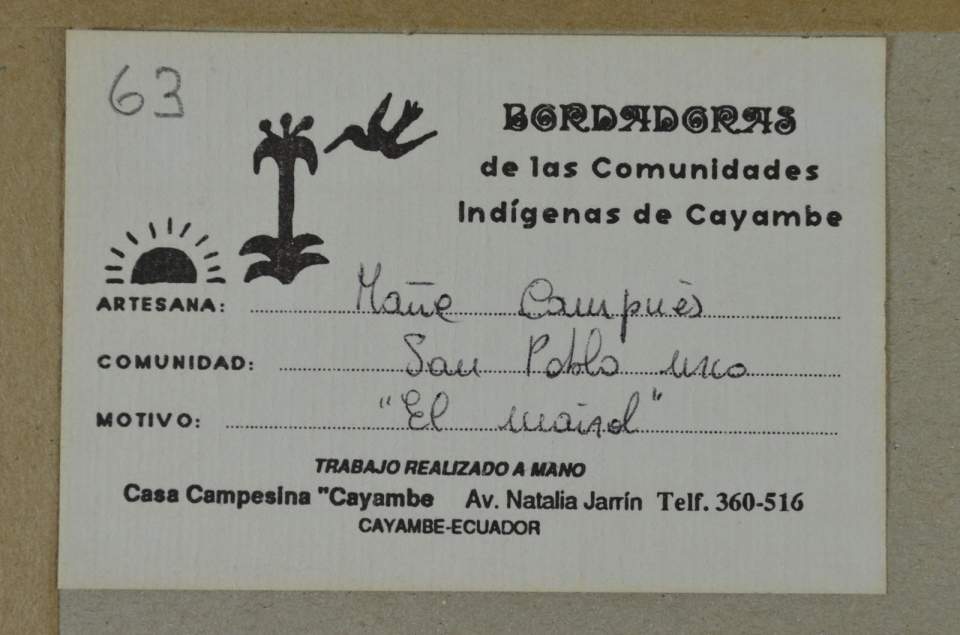 63
BORDADORAS
de las Comunidades
Indígenas de Cayambe
ARTESANA: Campués
COMUNIDAD: San Pablo uco
MOTIVO: "El maizal"
TRABAJO REALIZADO A MANO
Casa Campesina "Cayambe Av. Natalia Jarrín Telf. 360-516
CAYAMBE-ECUADOR